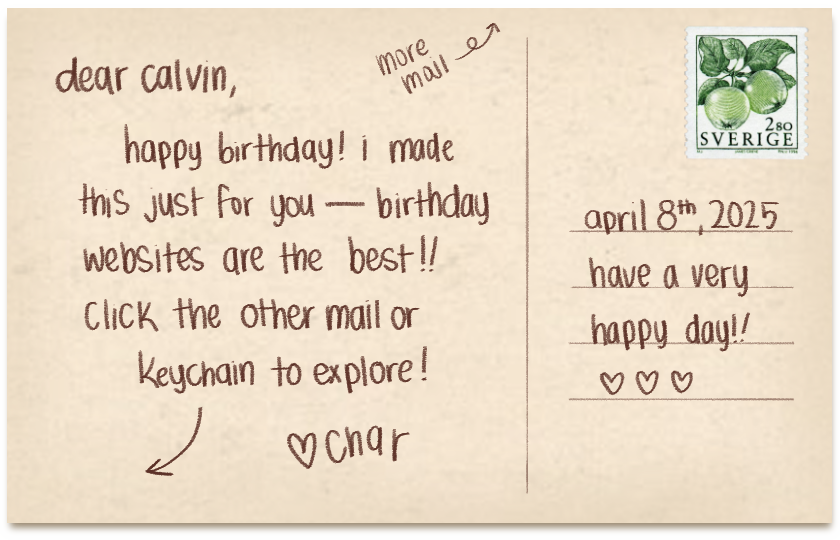 dear calvin,
more
mail
happy birthday! i made
this just for you — birthday
websites are the best!!
click the other mail or
keychain to explore!
♡ char
2 80
SVERIGE
april 8th, 2025
have a very
happy day!!
♡ ♡ ♡